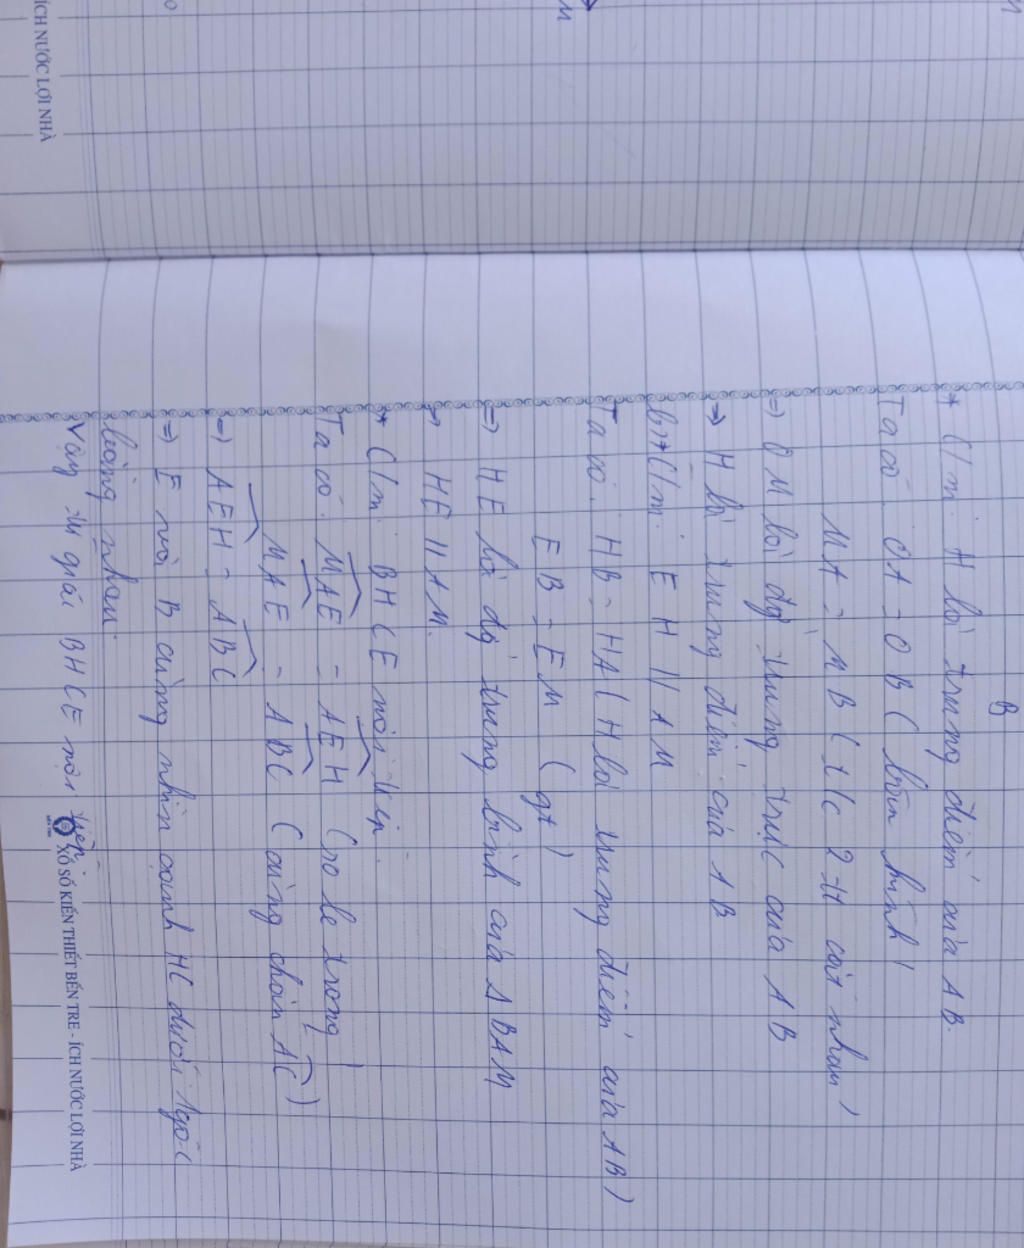 B
* C/m: H là trung điểm của AB.
Ta có: OA = OB (bán kính)
MA = MB (t/c 2 tt cắt nhau)
=> OM là đg trung trực của AB
=> H là trung điểm của AB
b, * C/m: EH // AM
Ta có: HB = HA (H là trung điểm của AB)
EB = EM (gt)
=> HE là đg trung bình của Δ BAM
=> HE // AM.
* C/m: BHCE nội tiếp.
Ta có: MAE = AEH (so le trong)
MAE = ABC (cùng chắn AC)
=> AEH = ABC
=> E và B cùng nhìn cạnh HC dưới 1 góc
bằng nhau.
Vậy tứ giác BHCE nội tiếp.
XỔ SỐ KIẾN THIẾT BẾN TRE - ÍCH NƯỚC LỢI NHÀ
ÍCH NƯỚC LỢI NHÀ
M